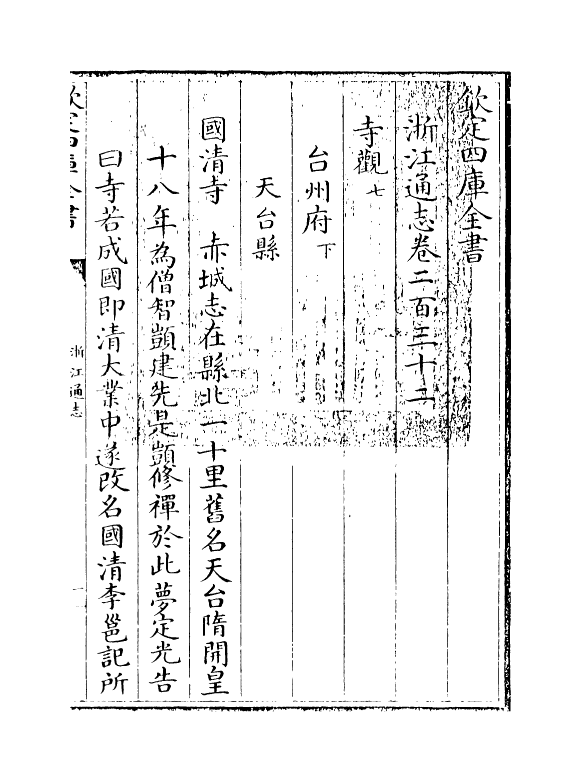 欽定四庫全書
浙江通志卷二百三十二
寺觀七
台州府下
天台縣
國清寺　赤城志在縣北一十里舊名天台隋開皇
十八年為僧智顗建先是顗修禪於此夢定光告
曰寺若成國即清大業中遂改名國清李邕記所
欽定四庫全書
浙江通志
一